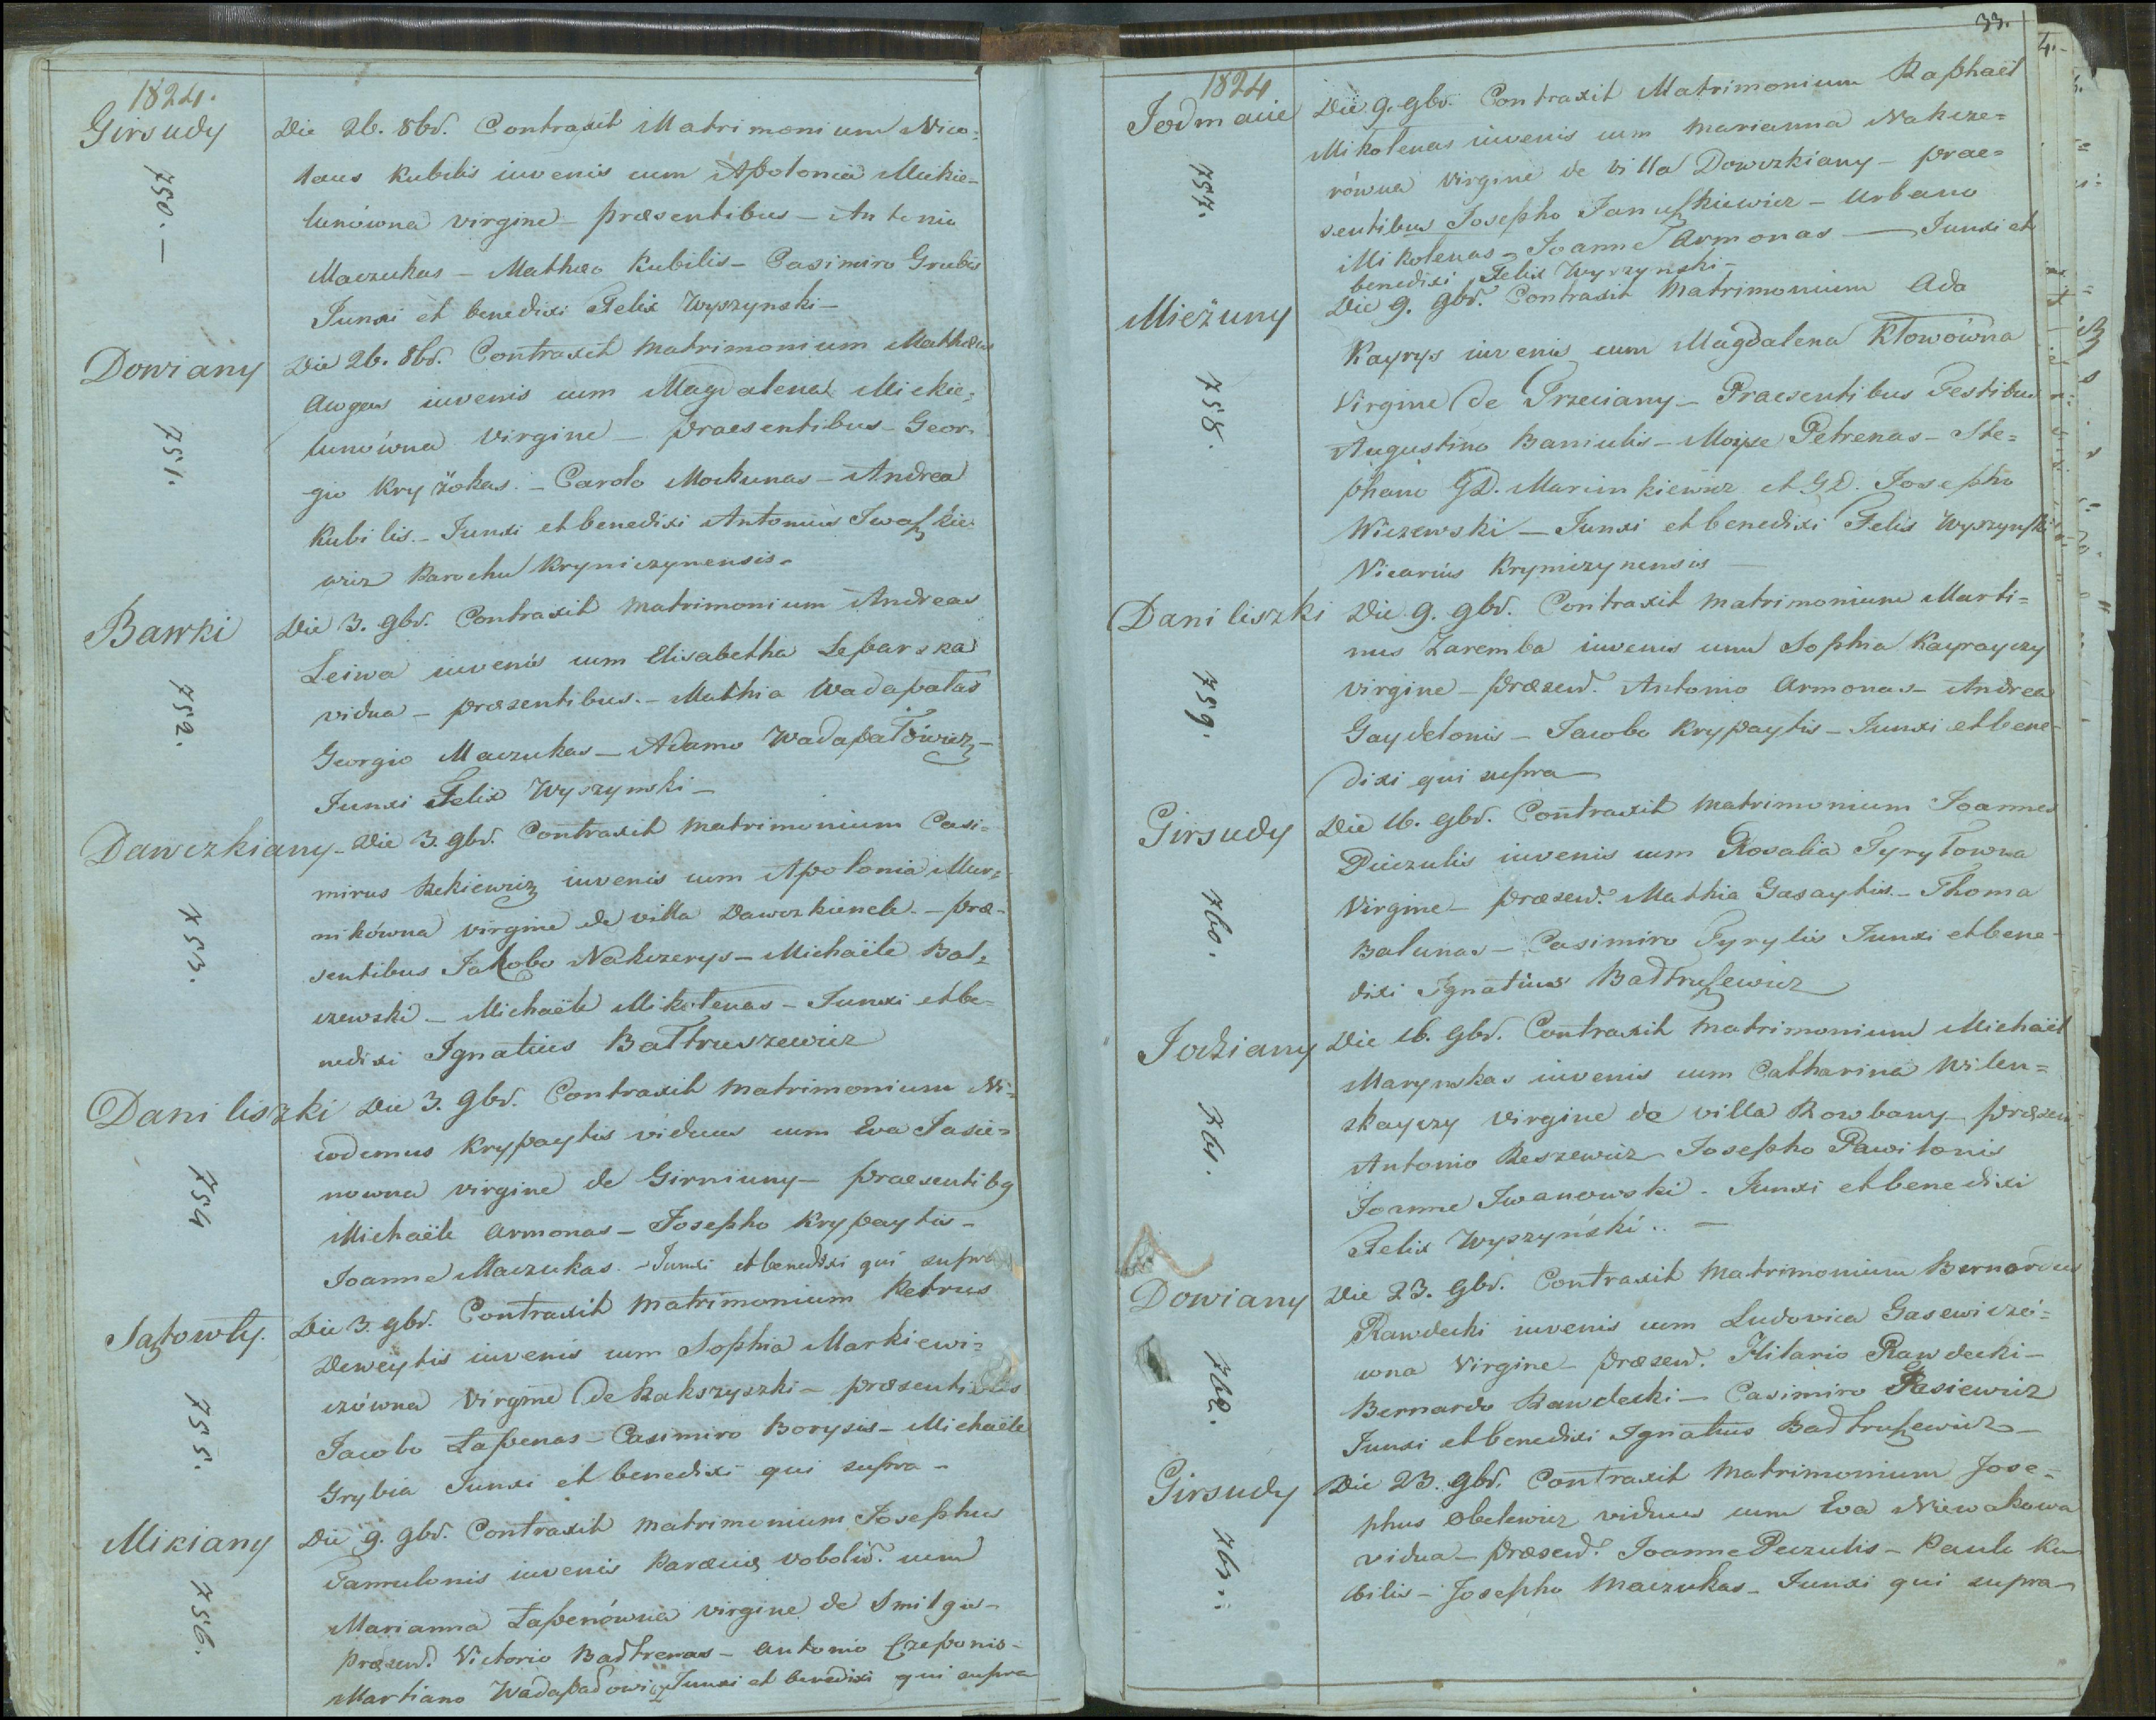 1824.
Girsudy
750. —
Die 26. 8br. Contraxit Matrimonium Nico-
laus Kubilis iuvenis cum Apolonia Mickie-
lunówna virgine – præsentibus – Antonio
Maczukas – Mathæo Kubilis – Casimiro Grubis
Junxi et benedixi Felix Wyszynski –
Dowiany
751.
Die 26. 8br. Contraxit Matrimonium Mathæus
Awgens iuvenis cum Magdalena Mickie-
lunówna virgine – præsentibus – Geor-
gio Kryżokas. – Carolo Mockunas – Andrea
Kubilis. – Junxi et benedixi Antonius Iwaszkie-
wicz Parochu Kryniczynensis –
Bawki
752.
Die 3. 9br. Contraxit Matrimonium Andreas
Leiwa iuvenis cum Elisabetha Leparska
vidua – præsentibus. – Mathia Wadapalas
Georgio Maczukas – Adamo Wadapałowicz –
Junxi Felix Wyszynski –
Dawczkiany –
753.
Die 3. 9br. Contraxit Matrimonium Casi-
mirus Rekiewicz iuvenis cum Apolonia Mur-
nikówna virgine de villa Dawczkienele. – præ-
sentibus Jakobo Nakczerys – Michaële Bal-
czewski – Michaële Mikolenas – Junxi et be-
nedixi Ignatius Bałtruszewicz
Daniliszki
754
Die 3. 9br. Contraxit Matrimonium Ni-
codemus Krypaytis viduus cum Eva Jasie-
nowna virgine de Girniuny – praesentibg
Michaële Armonas – Josepho Krypaytis –
Joanne Maczukas. – Junxi et benedixi qui supra
Satzowty.
755.
Die 3. 9br. Contraxit Matrimonium Petrus
Deweytis iuvenis cum Sophia Markiewi-
czówna Virgine de Rakszyszki – præsentibus
Jacobo Lapenas – Casimiro Borysis – Michaële
Grybia Junxi et benedixi qui supra –
Mikiany
756.
Die 9. 9br. Contraxit Matrimonium Josephus
Tamulonis iuvenis Paræciæ vobolid. cum
Marianna Łapenówna virgine de Smilgie –
præsend. Victorio Badtrenas – Antonio Czeponis –
Martiano Wadapadowicz Junxi et benedixi qui supra
33.
4.
1824
Jodmacie
757.
Die 9. 9br. Contraxit Matrimonium Raphaël
Mikolenas iuvenis cum Marianna Nakcze-
równa Virgine de villa Dowczkiany – prae-
sentibus Josepho Januszkiewicz – Urbano
Mikolenas – Joanne Armonas — Junxi et
benedixi Felix Wyszynski –
Mieżuny
758.
Die 9. 9br. Contraxit Matrimonium Ada
Kayrys iuvenis cum Magdalena Kłowówna
Virgine de Trzeciany – Praesentibus Testibus
Augustino Baniulis – Moyse Petrenas – Ste-
phano GD. Marcinkiewicz et GD. Josepho
Wiczewski – Junxi et benedixi Felix Wyszynski
Vicarius Kryniczynensis —
Daniliszki
759.
Die 9. 9br. Contraxit Matrimonium Marti-
nus Zaremba iuvenis cum Sophia Kayrayczy
virgine – præsend. Antonio Armonas – Andrea
Gaydelonis – Jacobo Krypaytis – Junxi et bene-
dixi qui supra –
Girsudy
760.
Die 16. 9br. Contraxit Matrimonium Joannes
Puczulis iuvenis cum Rosalia Tyrylowna
Virgine – præsend. Mathia Gasaytis – Thoma
Balunas – Casimiro Tyrylis Junxi et bene-
dixi Ignatius Badtruszewicz
Jodziany
761.
Die 16. 9br. Contraxit Matrimonium Michaël
Marynskas iuvenis cum Catharina Wilen-
skayczy Virgine de villa Rowbany – præsen
Antonio Reszewicz Josepho Pawilonis
Joanne Iwanowski – Junxi et benedixi
Felix Wyszyński .. —
Dowiany
762.
Die 23. 9br. Contraxit Matrimonium Bernardus
Rawdecki iuvenis cum Ludovica Gasewiczó-
wna Virgine – præsend. Hilario Rawdecki –
Bernardo Rawdecki – Casimiro Pasiewicz
Junxi et benedixi Ignatius Badtruszewicz –
Girsudy
763.
Die 23. 9br. Contraxit Matrimonium Jose-
phus Obelewicz viduus cum Eva Niewakowa
vidua – præsend. Joanne Puczulis – Paulo Ku
bilis – Josepho Maczukas – Junxi qui supra –